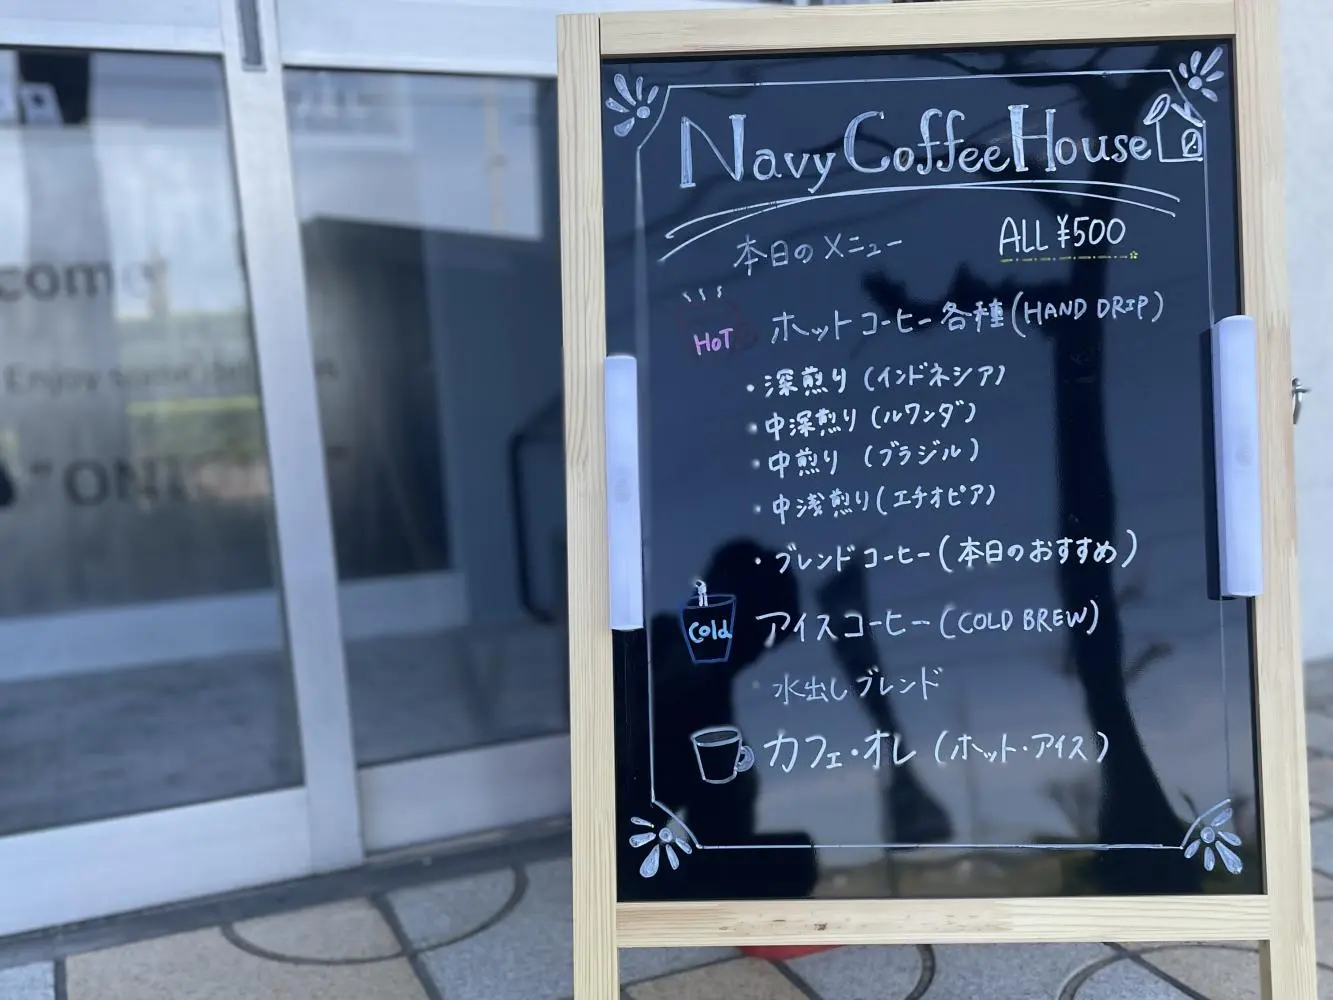 Navy Coffee House
本日のメニュー
ALL ¥500
HOT
ホットコーヒー各種(HAND DRIP)
・深煎り(インドネシア)
・中深煎り(ルワンダ)
・中煎り(ブラジル)
・中浅煎り(エチオピア)
・ブレンドコーヒー(本日のおすすめ)
Cold
アイスコーヒー(COLD BREW)
・水出しブレンド
カフェ・オレ(ホット・アイス)
come
Enjoy some